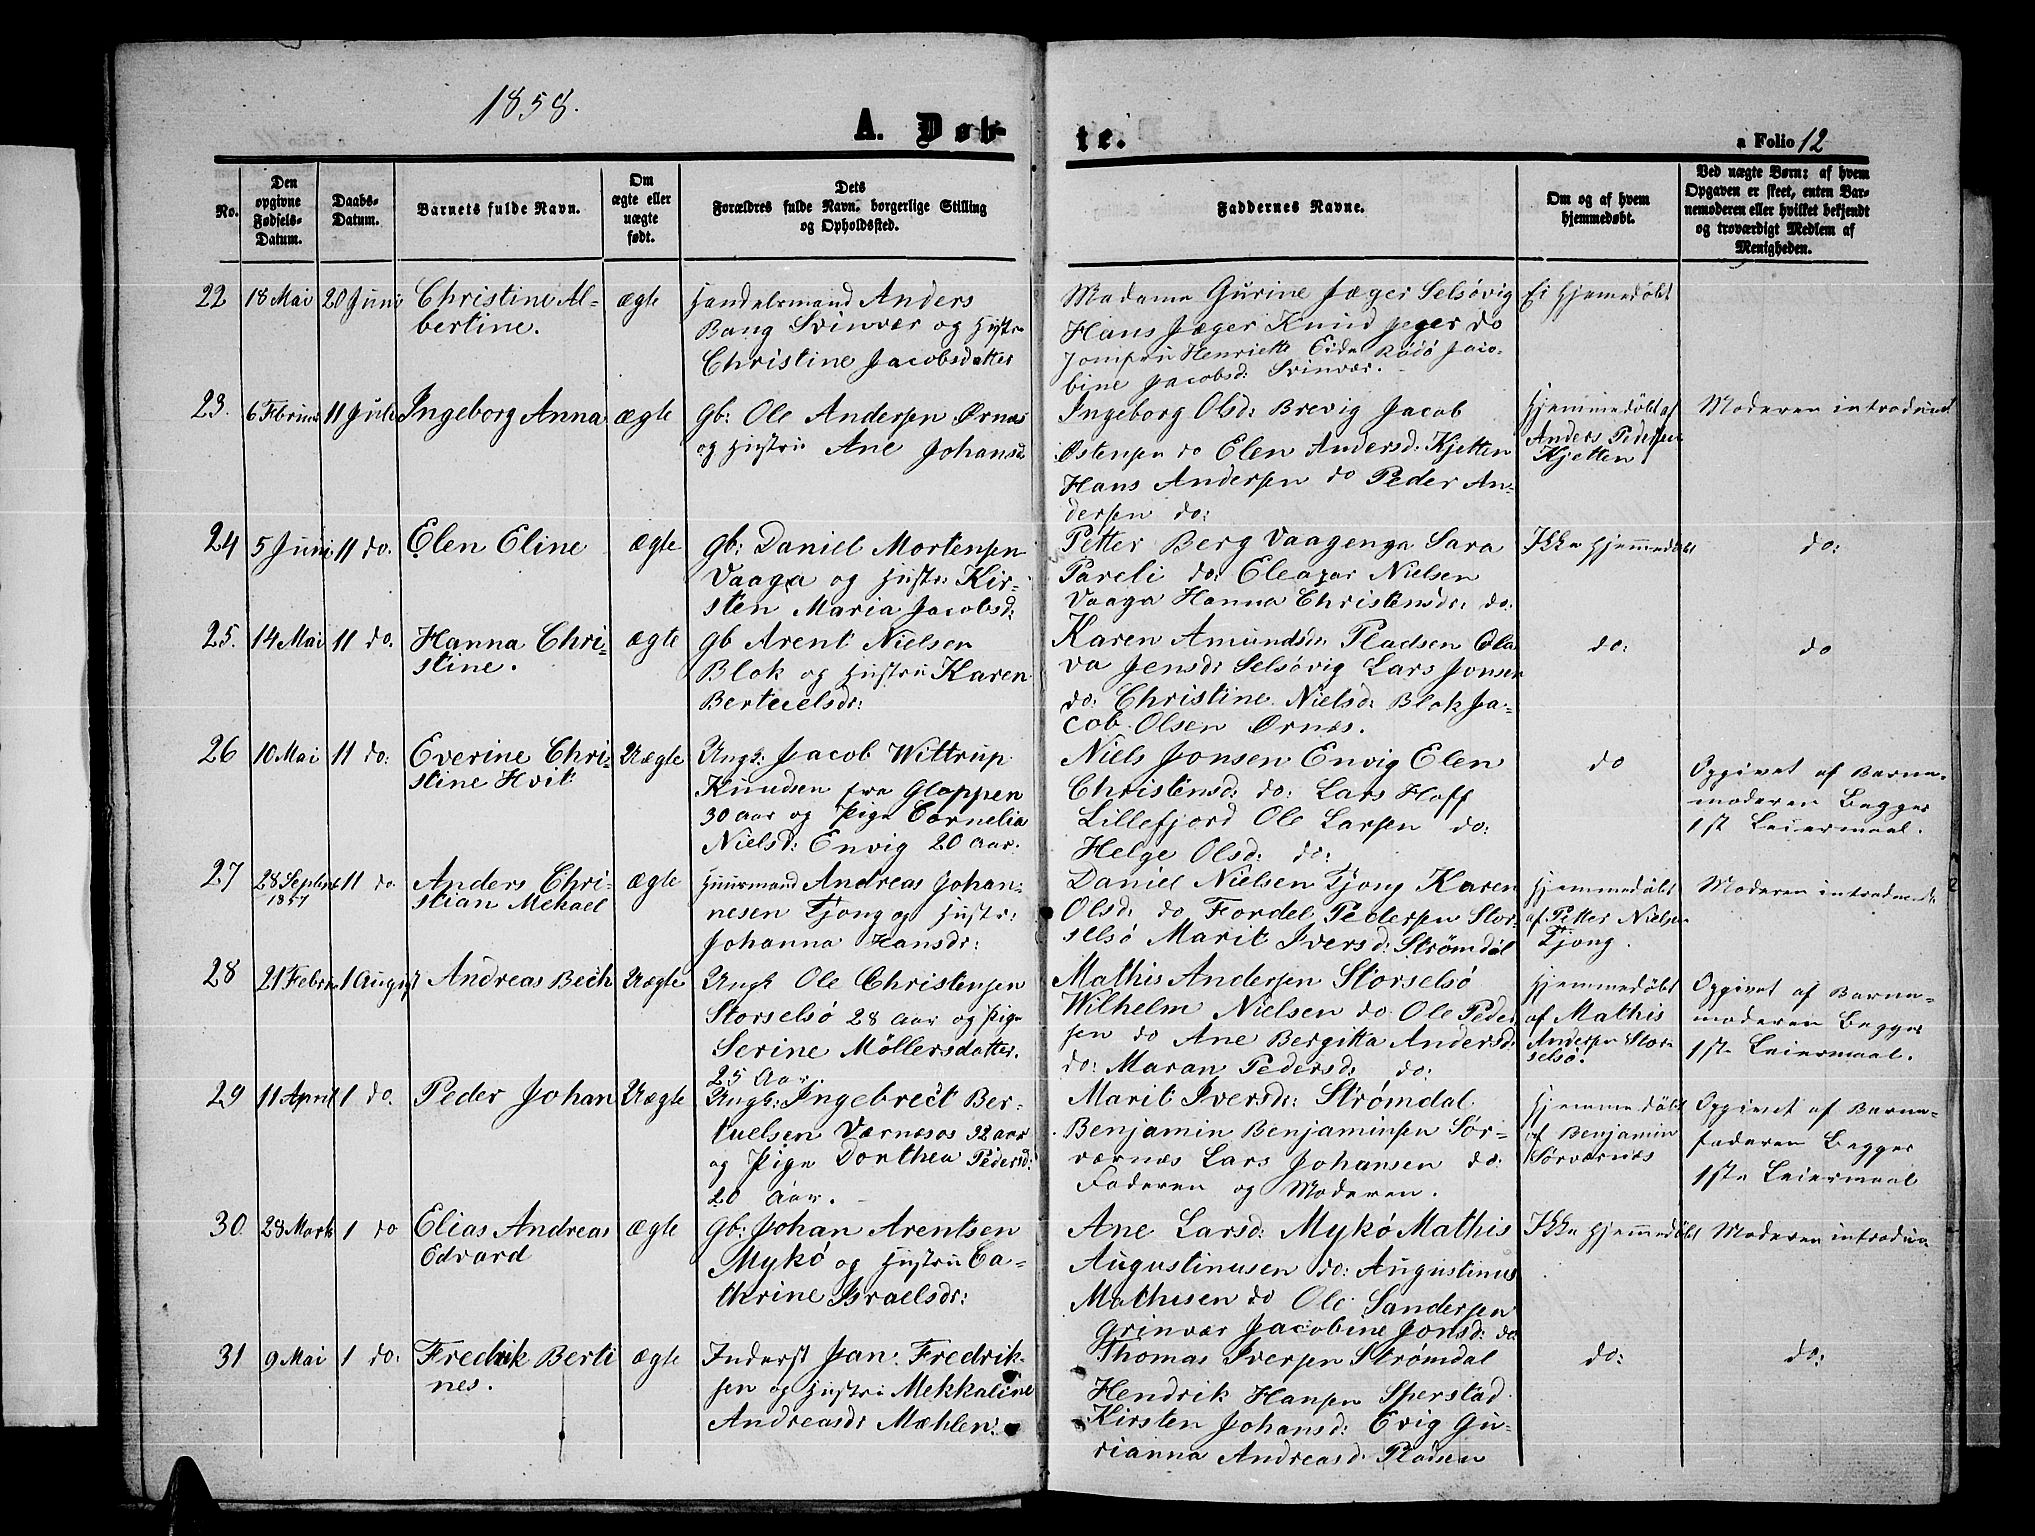 1858.
A. Døb-
te.
a Folio 12
No.
Den
opgivne
Fødsels-
Datum.
Daabs-
Datum.
Barnets fulde Navn.
Om
ægte eller
uægte
født.
Dets
Forældres fulde Navn, borgerlige Stilling
og Opholdssted.
Faddernes Navne.
Om og af hvem
hjemmedøbt.
Ved uægte Børn: af hvem
Opgaven er skeet, enten Bar-
nemoderen eller hvilket bekjendt
og troværdigt Medlem af
Menigheden.
22
18 Mai
20 Juni
Christine Al-
bertine.
ægte
Handelsmand Anders
Bang Svinvær og Hustru
Christine Jacobsdatter
Madame Gurine Jæger Selsøvig
Hans Jæger Knud Jeger do
Jomfru Henriette Eide Rødø Jaco-
bine Jacobsd: Svinvær.
Ei Hjemedøbt
23.
6 Februar
11 Juli
Ingeborg Anna
ægte
Gb: Ole Andersen Ørnæs
og Hustru Ane Johansd
Ingeborg Olsd: Brevig Jacob
Østensen do Elen Andersd: Kjetten
Hans Andersen do Peder An-
dersen do:
Hjemmedøbt af
Anders Pedersen
Kjetten
Moderen introduced
24
5 Juni
11 do.
Elen Eline
ægte
Gb: Daniel Mortensen
Vaaga og Hustr: Kir-
sten Maria Jacobsd:
Petter Berg Vaagenga Sara
Pareli do: Eleazar Nielsen
Vaaga Hanna Christensdr: do:
Ikke Hjemmedøbt
do:
25.
14 Mai
11 do.
Hanna Chri-
stine.
ægte
Gb Arent Nielsen
Blok og Hustru Karen
Berteielsdr:
Karen Amundsdr Pladsen Ola
va Jensdr Selsøvig Lars Jonsen
do: Christine Nielsd: Blok Ja-
cob Olsen Ørnæs.
do:
do
26
10 Mai
11 do:
Everine Chri-
stine Hvit
Uægte
Ungk: Jacob Wittrup
Knudsen fra Gloppen
30 Aar og Pige Cornelia
Nielsd: Envig 20 Aar.
Niels Jonsen Envig Elen
Christensd: do: Lars Hoff
Lillefjord Ole Larsen do:
Helge Olsd: do:
do
Opgivet af Barne-
moderen Begges
1st Leiermaal.
27
28 Septbr
1857
11 do
Anders Chri-
stian Mehael
ægte
Huusmand Andreas Johan-
nesen Tjong og Hustr:
Johanna Hansdr:
Daniel Nielsen Tjong Karen
Olsd: do Fordel Pedersen Stor
selsø Marit Iversd: Strømdal
Hjemmedøbt
af Petter Nielsen
Tjong.
Moderen introduced
28
21 Febru
1 August
Andreas Bech
Uægte
Ungk Ole Christensen
Storselsø 28 Aar og Pige
Serine Möllersdatter.
25 Aar.
Mathis Andersen Storselsø
Wilhelm Nielsen do Ole Peder
sen do Ane Bergitta Andersd:
do: Maran Pedersd: do:
Hjemmedøbt
af Mathis
Andersen Stor-
selsø.
Opgivet af Barne-
moderen Begges
1ste Leiermaal.
29
11 April
1 do.
Peder Johan
Uægte
Ungk: Ingebrect Ber-
tuelsen Værnæsos 32 Aar
og Pige Dorthea Pedersd:
20 Aar.
Marit Iversdr: Strømdal
Benjamin Benjaminsen Sør-
værnæs Lars Johansen do:
Faderen og Moderen.
Hjemmedøbt
af Benjamin
Sørværnæs
Opgivet af Barne-
faderen Begges
1ste Leiermaal
30
28 Marts
1 do
Elias Andreas
Edvard
ægte
Gb: Johan Arentsen
Mykø og Hustru Ca-
thrine Israelsdr:
Ane Larsd: Mykø Mathis
Augustinusen do: Augustinus
Mathisen do Ole Sandersen
Grinvær Jacobine Jonsd: do:
Ikke Hjemmedøbt
Moderen introdue
31
9 Mai
1 do:
Fredrik Berti
nes.
ægte
Inderst Jan Fredrik-
sen og Hustru Mekkaline
Andreasdr Mæhlen:
Thomas Iversen Strømdal
Hendrik Hansen Sperstad
Kirsten Johansd: Evig Gu-
rianna Andreasd. Pladsen
do:
do: